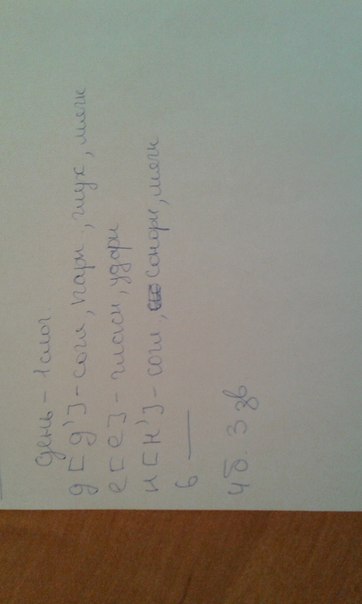 день - 1 слог
д [д'] - согл, парн, глух, мягк
е [е] - гласн, ударн
н [н'] - согл, сонорн, мягк
ь ——
4 б. 3 зв